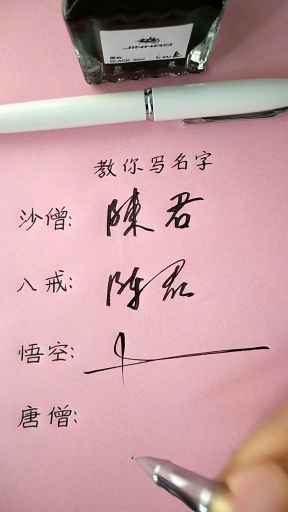 JINHAO
教你写名字
沙僧: 陳君
八戒: 陈君
悟空:
唐僧: